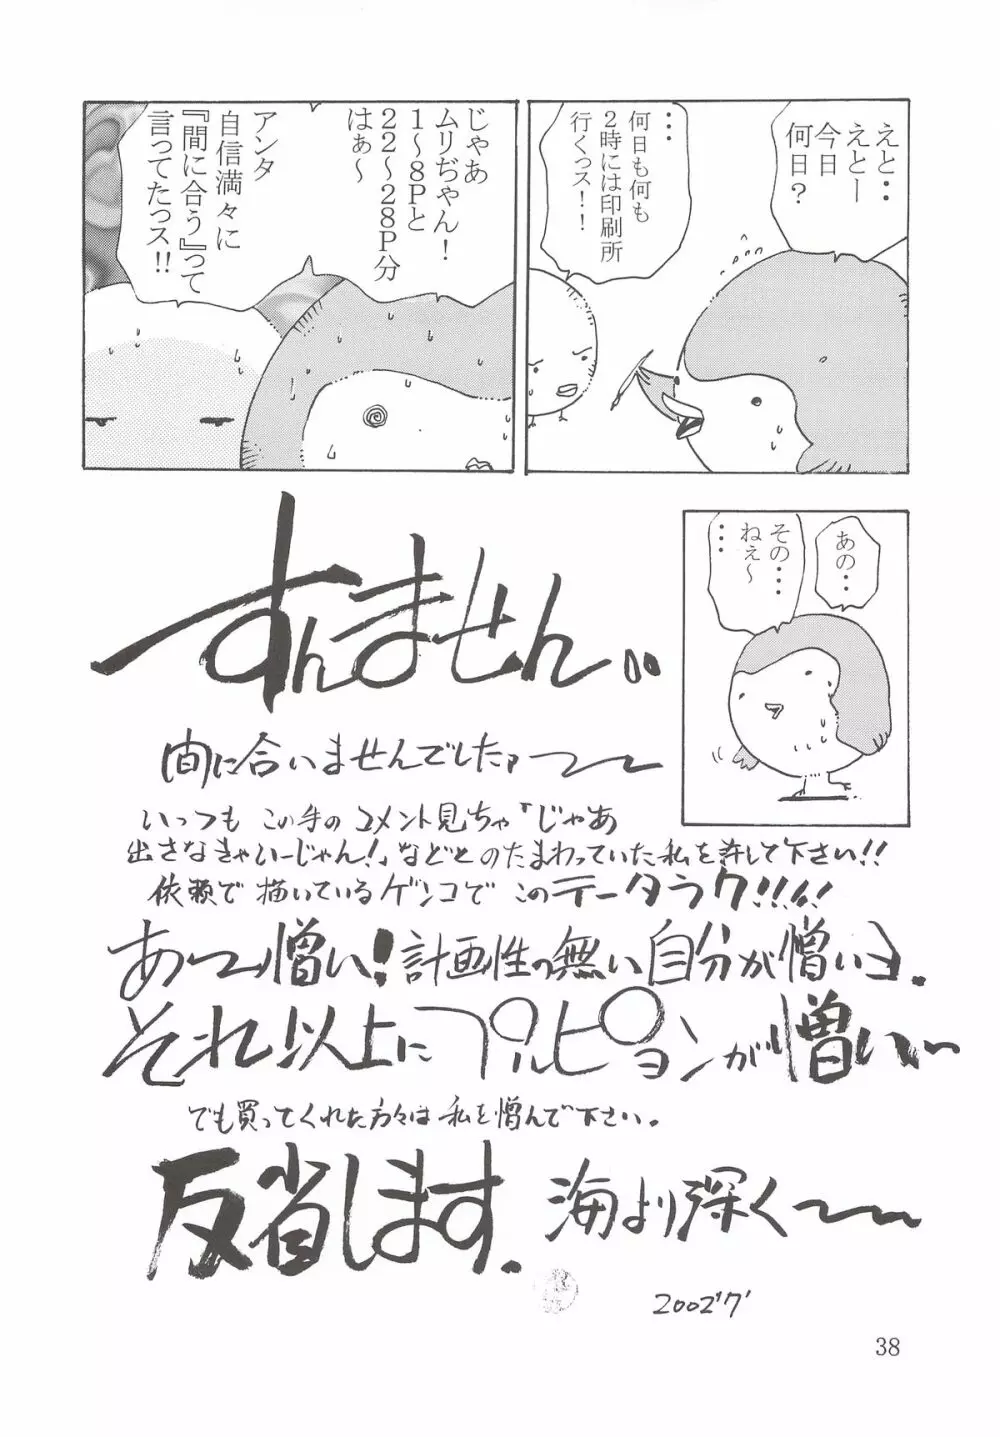 えと・・
えとー
今日
何日?
・・・
何日も何も
2時には印刷所
行くっス!!
じゃあ
ムリぢゃん!
1〜8Pと
22〜28P分
はぁ〜
アンタ
自信満々に
『間に合う』って
言ってたっス!!
あの・・
その・・・
ねぇ〜
・・・
すんません〃
間に合いませんでした〜
いつも この手の コメント見ちゃ「じゃあ
出さなきゃいーじゃん!」などと のたまわっていた私を許して下さい!!
依頼で 描いているゲンコで この テータラク!!!!
あ〜憎い!計画性の無い自分が憎いヨ.
それ以上にプルピョンが憎い〜
でも買ってくれた方々は 私を憎んで下さい。
反省します. 海より深く〜
2002'7'
38